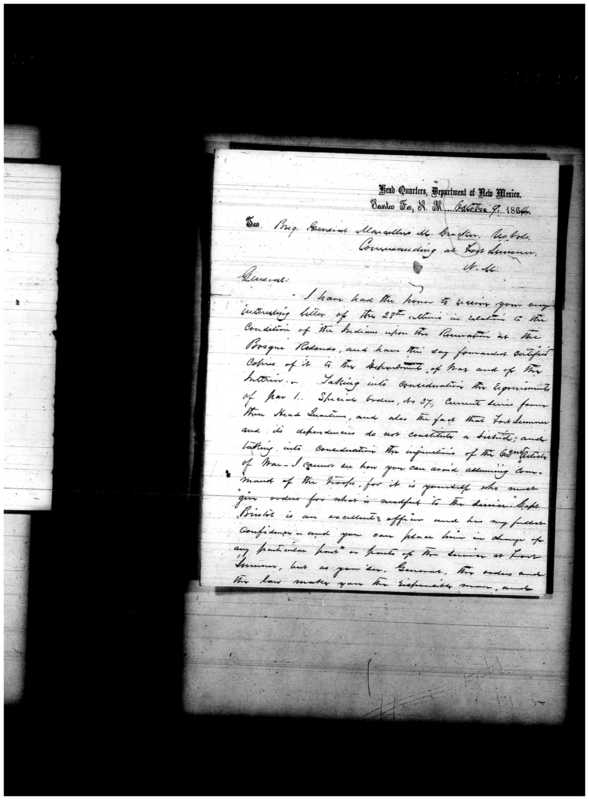 Head Quarters, Department of New Mexico.
Santa Fe, N. M. October 9, 1864.
To Brig. General Marcellus M. Crocker. U.S. Vols.
Commanding at Fort Sumner,
N. M.
General:
I have had the honor to receive your very
interesting letter of the 28th ultimo in relation to the
Condition of the Indians upon the Reservation at the
Bosque Redondo, and have this day forwarded certified
copies of it to the Departments of War and of the
Interior. Taking into consideration the requirements
of par 1. Special Orders, No 37, current series from
these Head Quarters, and also the fact that Fort Sumner
and its dependencies do not constitute a District; and
taking into consideration the injunctions of the 62nd Article
of War. I cannot see how you can avoid assuming Com-
mand of the troops. for it is yourself who must
"give orders for what is needful to the service" Capt
Bristol is an excellent officer and has my fullest
Confidence and you can place him in charge of
any particular part or parts of the service at Fort
Sumner, but as you see, General, the orders and
the law makes you the responsible man, and